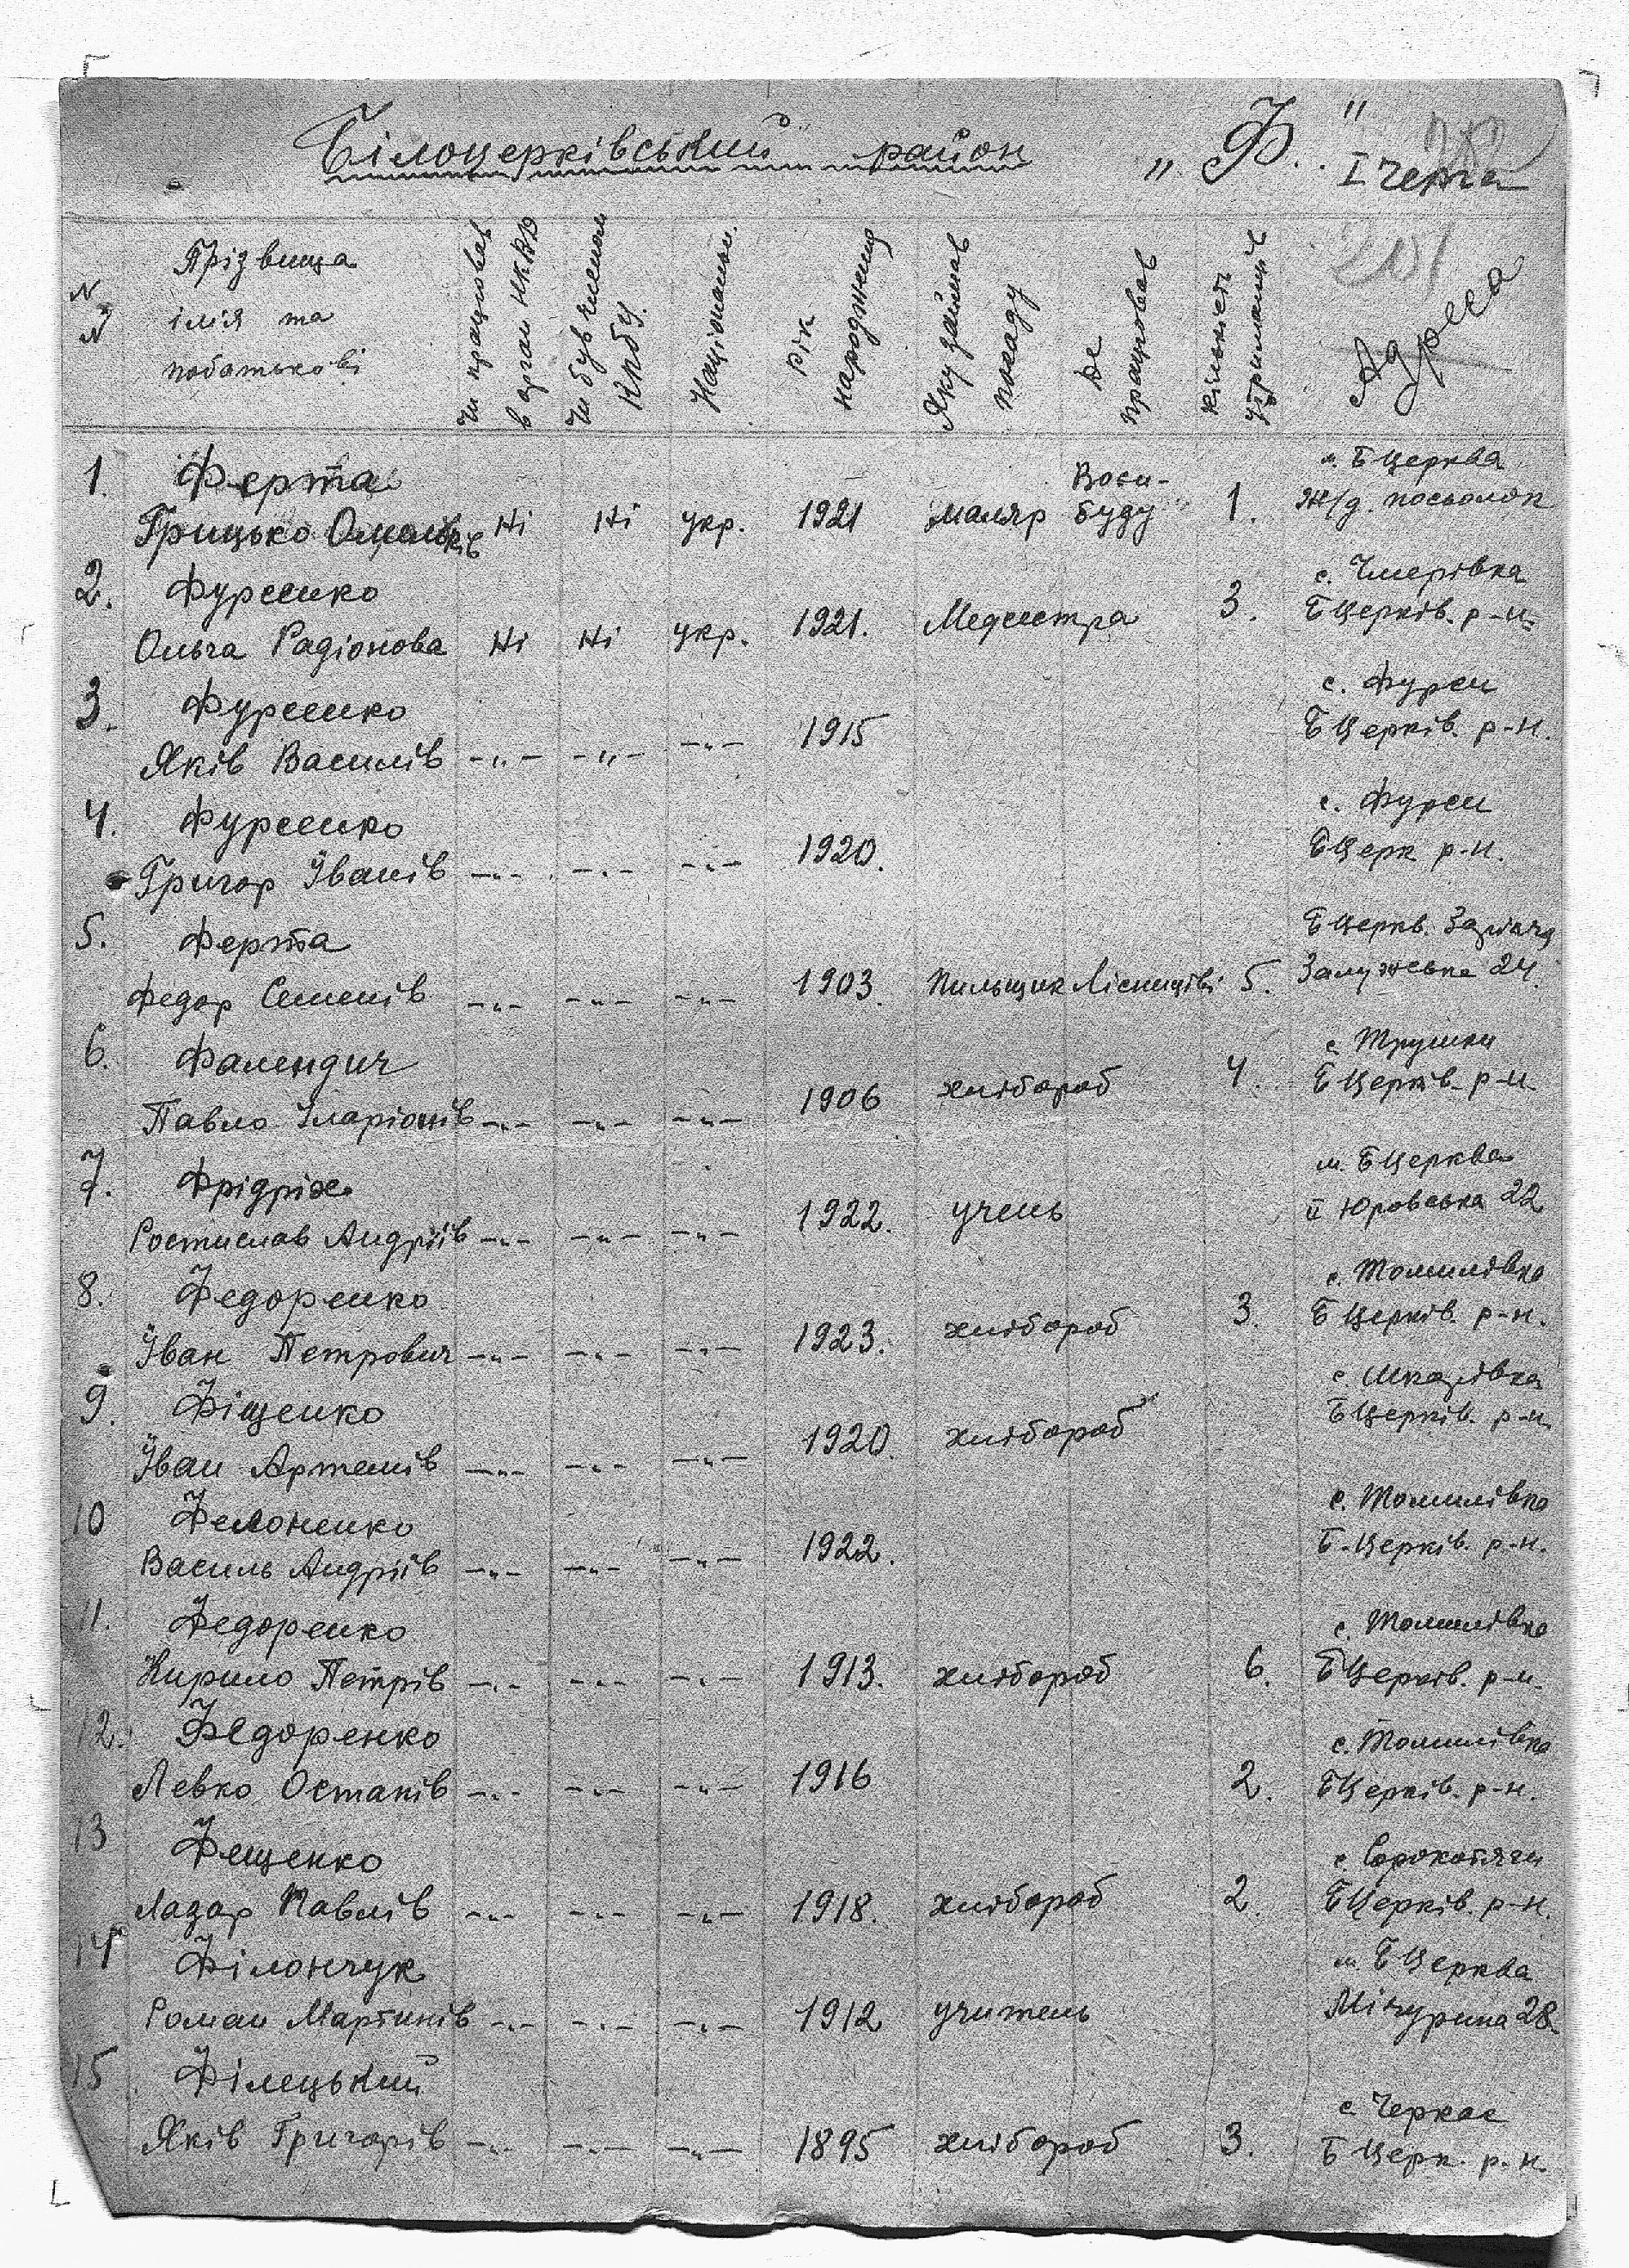 Білоцерківський район „Ф."
I черга
N N
Прізвища
ім'я та
побатькові
Чи працював
в орган НКВД
Чи був членом
КПбУ.
Національн.
Рік
народження
Яку займав
посаду
Де
працював
Кількість
утриманців
Адреса
1. Ферта м. БЦерква
Грицько Омельків Ні Ні укр. 1921 маляр Воєн-буду 1. Ж/д. посьолок
2. Фурсенко с. Чмирівка
Ольга Радіонова Ні Ні укр. 1921. Медсестра 3. БЦерків. р-н.
3. Фурсенко с. Фурси
Яків Василів -„- -„- -„- 1915 БЦерків. р-н.
4. Фурсенко с. Фурси
Григор Іванів -„- -„- -„- 1920. БЦерк р-н.
5. Ферта БЦеркв. Заріччя
Федор Семенів -„- -„- -„- 1903. Пильщик 5. 24.
6. Фалендич с. Трушки
Павло Іларіонів -„- -„- -„- 1906 хлібороб 4. БЦерків. р-н
7. Фрідріх м. БЦерква
Ростислав Андріїв -„- -„- -„- 1922. учень 22
8. Федоренко с. Томилівка
Іван Петрович -„- -„- -„- 1923. хлібороб 3. БЦерків. р-н.
9. Фіщенко с Шкарівка
Іван Артемів -„- -„- -„- 1920. хлібороб БЦерків. р-н
10 Филоненко с. Томилівка
Василь Андріїв -„- -„- -„- 1922. Б-Церків. р-н.
11. Федоренко с. Томилівка
Кирило Петрів -„- -„- -„- 1913. хлібороб 6. БЦерків. р-н.
12. Федоренко с. Томилівка
Левко Остапів -„- -„- -„- 1916 2. БЦерків. р-н.
13 Фещенко с. Сорокотяги
Лазар Павлів -„- -„- -„- 1918. хлібороб 2. БЦерків. р-н.
14 Філончук м. БЦерква
Роман Мартинів -„- -„- -„- 1912 учитель Мічурина 28.
15 Філецький с. Черкас
Яків Григорів -„- -„- -„- 1895 хлібороб 3. БЦерк. р-н.